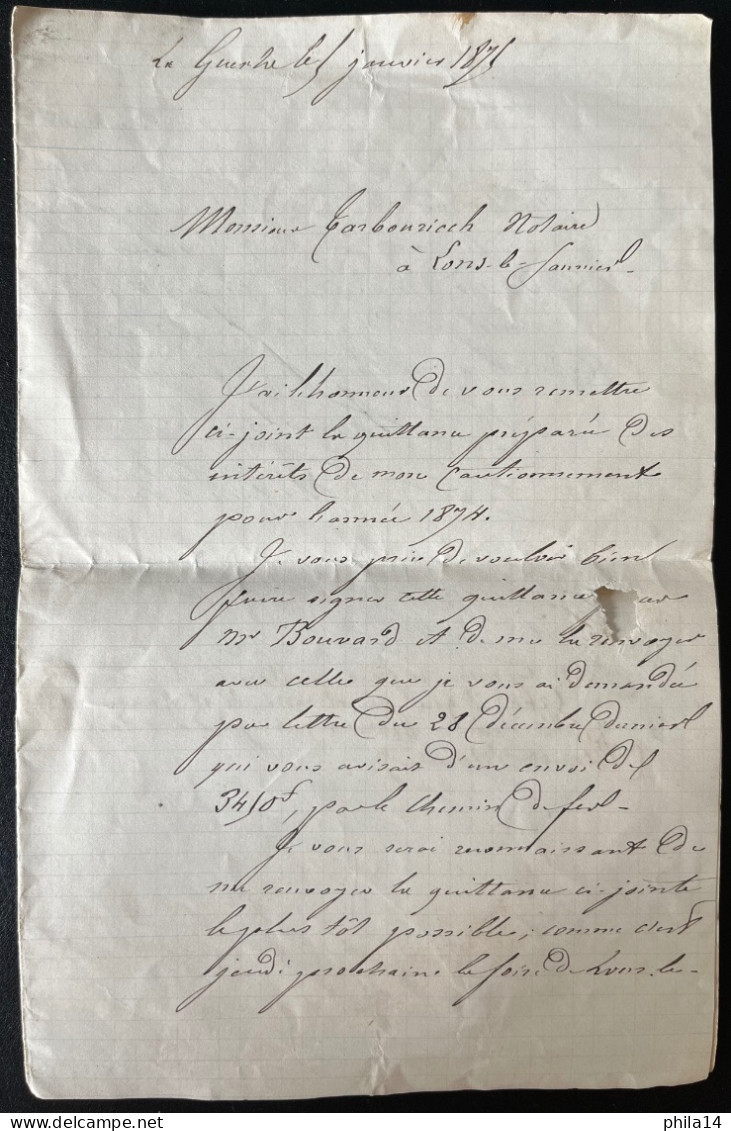 La Guerche le 5 janvier 1875
Monsieur Tarbouriech Notaire
à Lons-le-Saunier
J'ai l'honneur de vous remettre
ci-joint la quittance préparée des
intérêts de mon cautionnement
pour l'année 1874.
Je vous prie de vouloir bien
faire signer cette quittance par
Mr Bouvard et de me la renvoyer
avec celle que je vous ai demandée
par lettre du 28 Décembre dernier
qui vous avisait d'un envoi de
3450f, par le chemin de fer.
Je vous serai reconnaissant de
me renvoyer la quittance ci-jointe
le plus tôt possible, comme c'est
jeudi prochain la foire de Lons-le-
phila14